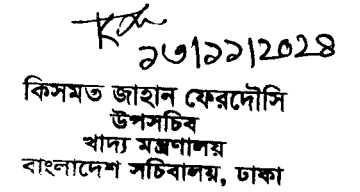 ১৩/১১/2024
কিসমত জাহান ফেরদৌসি
উপসচিব
খাদ্য মন্ত্রণালয়
বাংলাদেশ সচিবালয়, ঢাকা